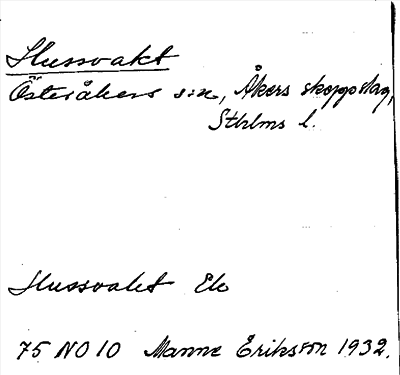 Slussvakt
Österåkers s:n, Åkers skeppslag,
Sthlms l.
Slussvakt Ek
75 NO 10 Manne Eriksson 1932.